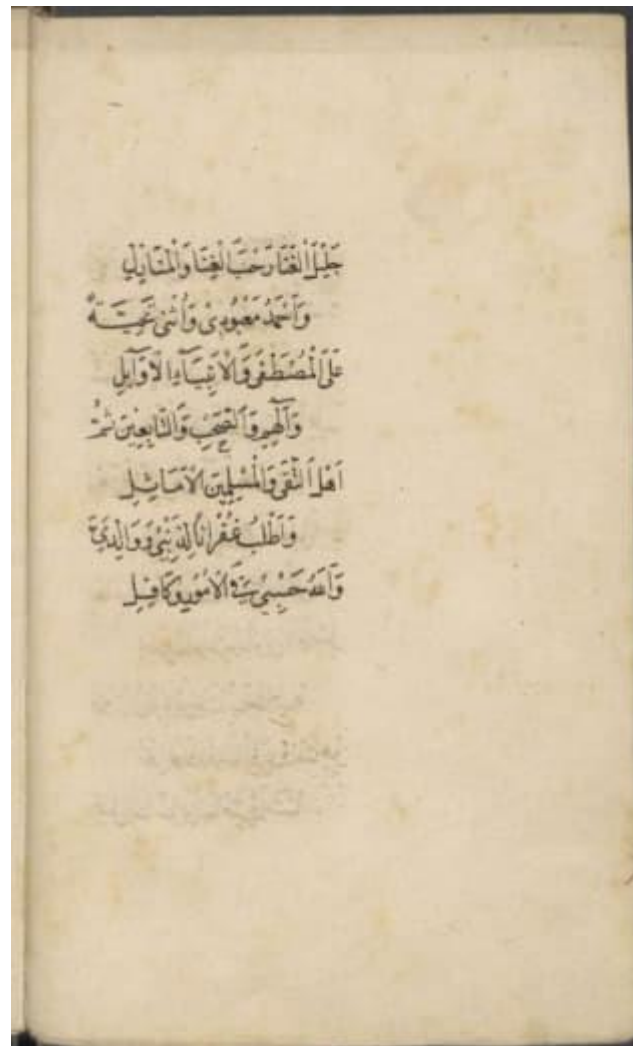 جَلِيلَ الْغَنَا رَحْبَ الْغِنَا وَالْمَنَازِلِ
وَاَحْمَدُ مَعْبُودِيْ وَاُثْنِيْ تَحِيَّةً
عَلَى الْمُصْطَفَى وَالْاَنْبِيَآءِ الْاَوَآئِلِ
وَآلِهِمِ وَالصَّحْبِ وَالتَّابِعِيْنَ ثُمَّ
اَهْلِ التُّقَى وَالْمُسْلِمِيْنَ الْاَمَاثِلِ
وَاَطْلُبُ غُفْرَانًا لِذَنْبِيْ وَوَالِدِيَّ
وَاللّٰهُ حَسْبِيْ فِي الْاُمُوْرِ وَكَافِلِ